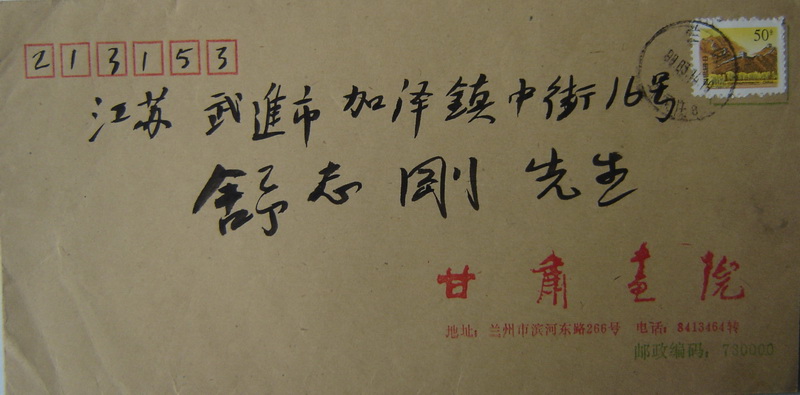 213153
50分
江苏 武進市 加泽镇中街16号
舒志剛 先生
甘肃画院
地址：兰州市滨河东路266号 电话：8413464转
邮政编码：730000